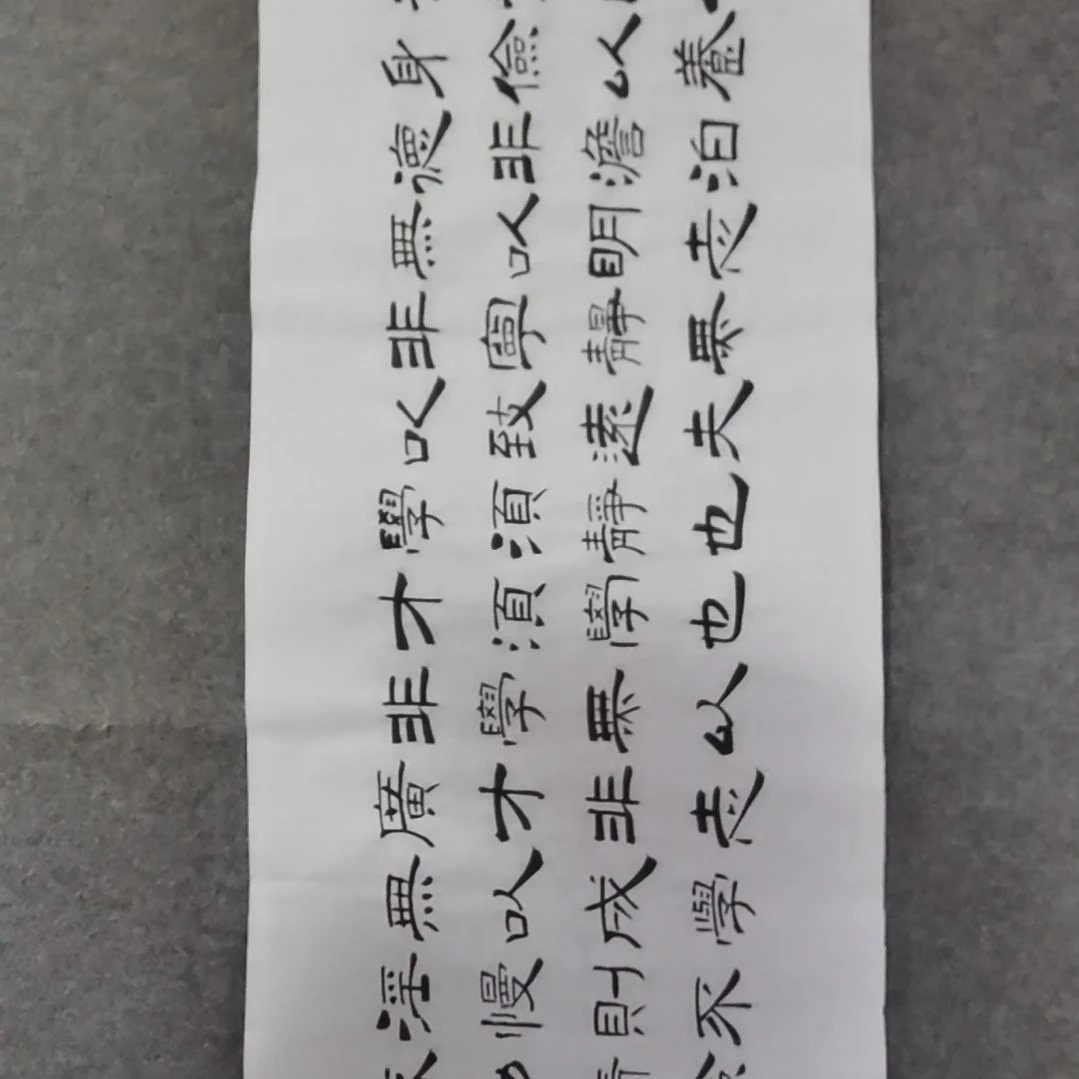 身儉以養
德非澹泊
無以明志
非寧靜無
以致遠夫
學須靜也
才須學也
非學無以
廣才非志
無以成學
淫慢則不